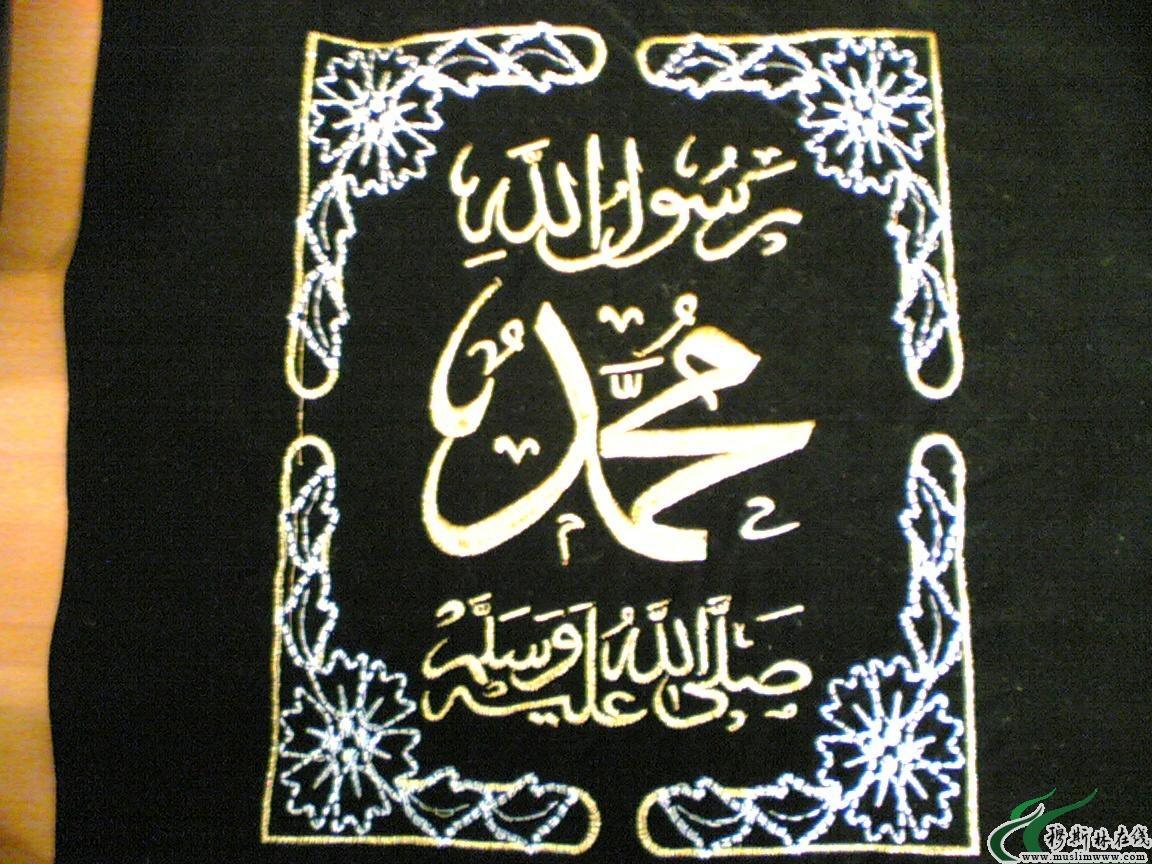 رَسُولُ اللَّهِ
مُحَمَّدٌ
صَلَّى اللَّهُ عَلَيْهِ وَسَلَّمَ
穆斯林在线
www.muslimwww.com